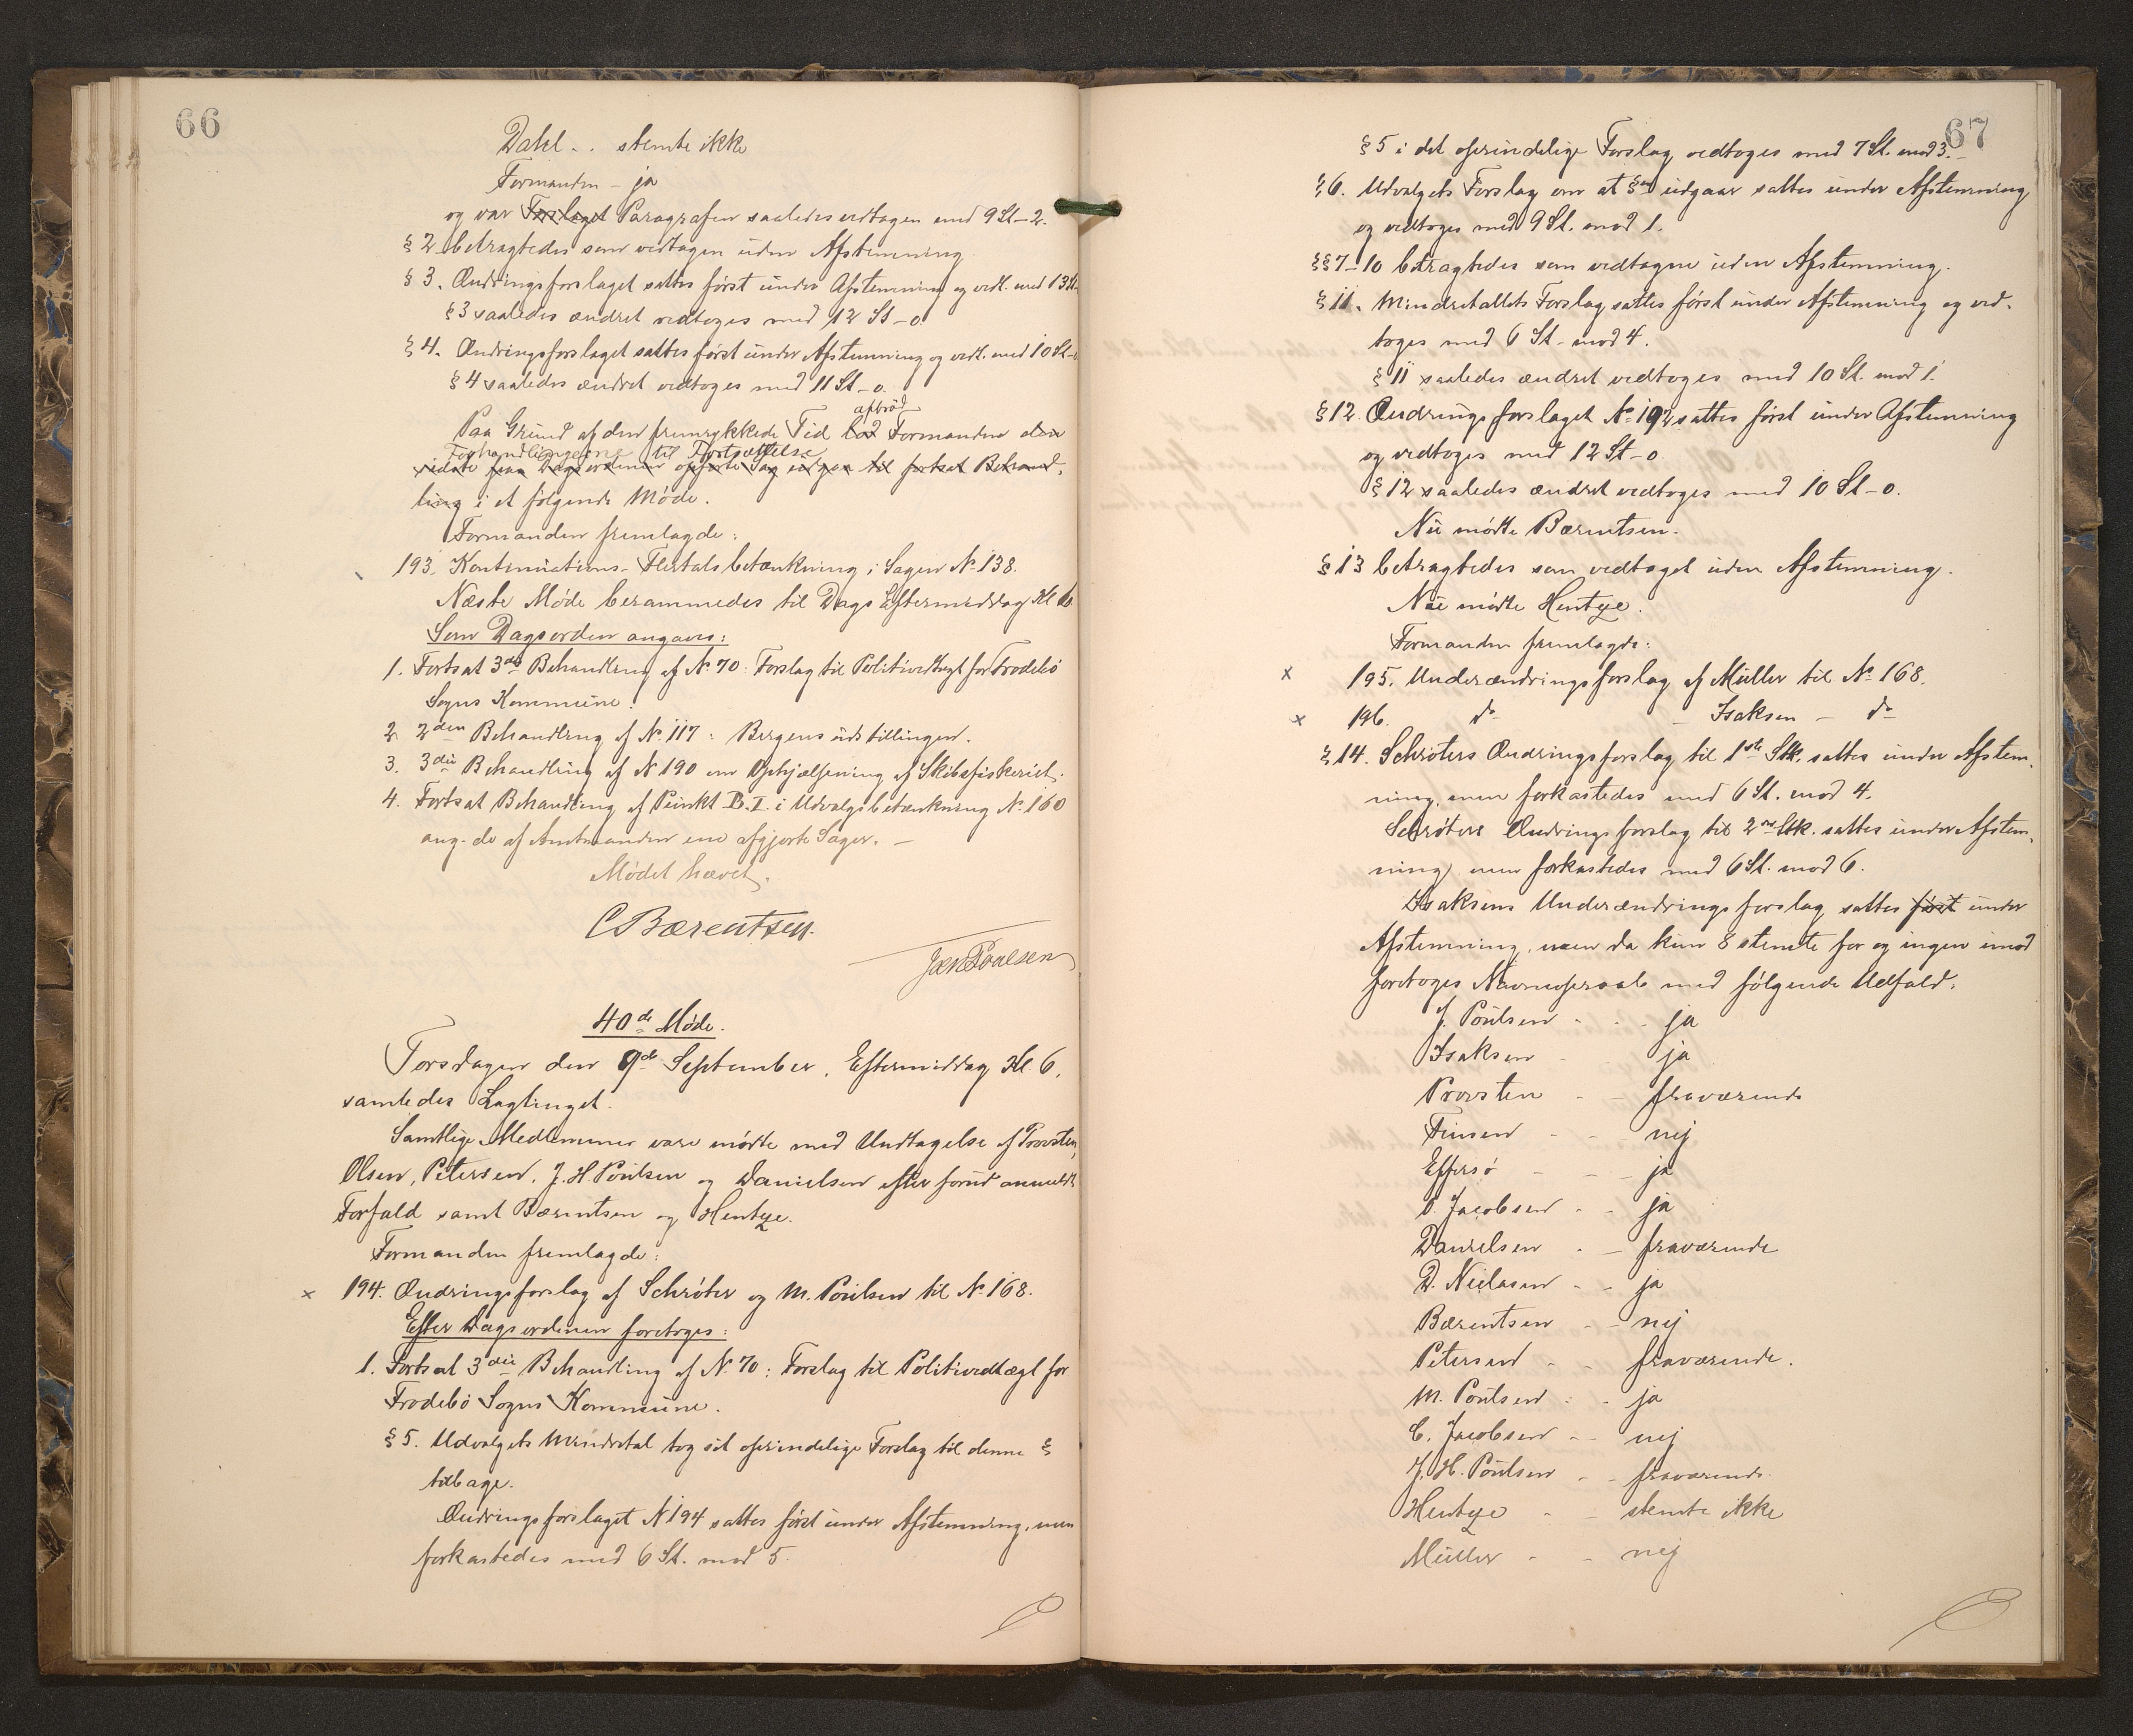 66
Dahl - - stemte ikke
Formanden - ja
og var Forslaget Paragrafen saaledes vedtagen med 9 St - 2.
§ 2 betragtedes som vedtagen uden Afstemning.
§ 3. Ændringsforslaget sattes først under Afstemning og vedt. med 13 St-
§ 3 saaledes ændret vedtoges med 12 St - 0.
§ 4. Ændringsforslaget sattes først under Afstemning og vedt. med 10 St-0
§ 4 saaledes ændret vedtoges med 11 St - 0.
afbrød
Paa Grund af den fremrykkede Tid lod Formanden den
Forhandlingerne til Fortsættelse
sidste paa Dagsordenen opførte Sag udgaa til fortsat Behand-
ling i et følgende Møde.
Formanden fremlagde:
193. Kontinuations-Flertalsbetænkning i Sagen № 138.
Næste Møde berammedes til Dags Eftermiddag Kl 6
Som Dagsorden angaves:
1. Fortsat 3die Behandling af № 70: Forslag til Politivedtægt for Frodebø
Sogns Kommune.
2. 2den Behandling af № 117: Bergensudstillingen.
3. 3die Behandling af № 190 om Ophjælpning af Skibsfiskeriet.
4. Fortsat Behandling af Punkt B. I. i Udvalgsbetænkning № 160
ang. de af Amtmanden ene afgjorte Sager. -
Mødet hævet.
C Bærentsen.
Joen Poulsen
40de Møde.
Torsdagen den 9de September, Eftermiddag Kl 6,
samledes Lagtinget.
Samtlige Medlemmer vare mødte med Undtagelse af Provsten,
Olsen, Petersen, J. H. Poulsen og Danielsen efter forud anmeldt
Forfald samt Bærentsen og Hentze.
Formanden fremlagde:
x 194. Ændringsforslag af Schrøter og M. Poulsen til № 168.
Efter Dagsordenen foretoges:
1. Fortsat 3die Behandling af № 70: Forslag til Politivedtægt for
Frodebø Sogns Kommune.
§ 5. Udvalgets Mindretal tog sit oprindelige Forslag til denne §
tilbage.
Ændringsforslaget № 194 sattes først under Afstemning, men
forkastedes med 6 St. mod 5.
67
§ 5 i det oprindelige Forslag vedtoges med 7 St. mod 3. -
§ 6. Udvalgets Forslag om at §en udgaar sattes under Afstemning
og vedtoges med 9 St. mod 1.
§§ 7-10 betragtedes som vedtagne uden Afstemning.
§ 11. Mindretallets Forslag sattes først under Afstemning og ved-
toges med 6 St- mod 4.
§ 11 saaledes ændret vedtoges med 10 St. mod 1.
§ 12. Ændringsforslaget № 192 sattes først under Afstemning
og vedtoges med 12 St - 0.
§ 12 saaledes ændret vedtoges med 10 St - 0.
Nu mødte Bærentsen.
§ 13 betragtedes som vedtaget uden Afstemning.
Nu mødte Hentze.
Formanden fremlagde:
x 195. Underændringsforslag af Müller til № 168.
x 196. do - Isaksen - do
§ 14. Schrøters Ændringsforslag til 1ste Stk. sattes under Afstem-
ning, men forkastedes med 6 St. mod 4.
Schrøters Ændringsforslag til 2det Stk. sattes under Afstem-
ning, men forkastedes med 6 St. mod 6.
Isaksens Underændringsforslag sattes først under
Afstemning, men da kun 8 stemte for og ingen imod
foretoges Navneopraab med følgende Udfald.
J. Poulsen - - - ja
Isaksen - - ja
Provsten - - fraværende
Finsen - - nej
Effersø - - ja
O. Jacobsen - - ja
Danielsen - - fraværende
D. Nielasen - - ja
Bærentsen - - nej
Petersen - - fraværende.
M. Poulsen - - ja
C. Jacobsen - - nej
J. H. Poulsen - - fraværende.
Hentze - - stemte ikke
Müller - - nej